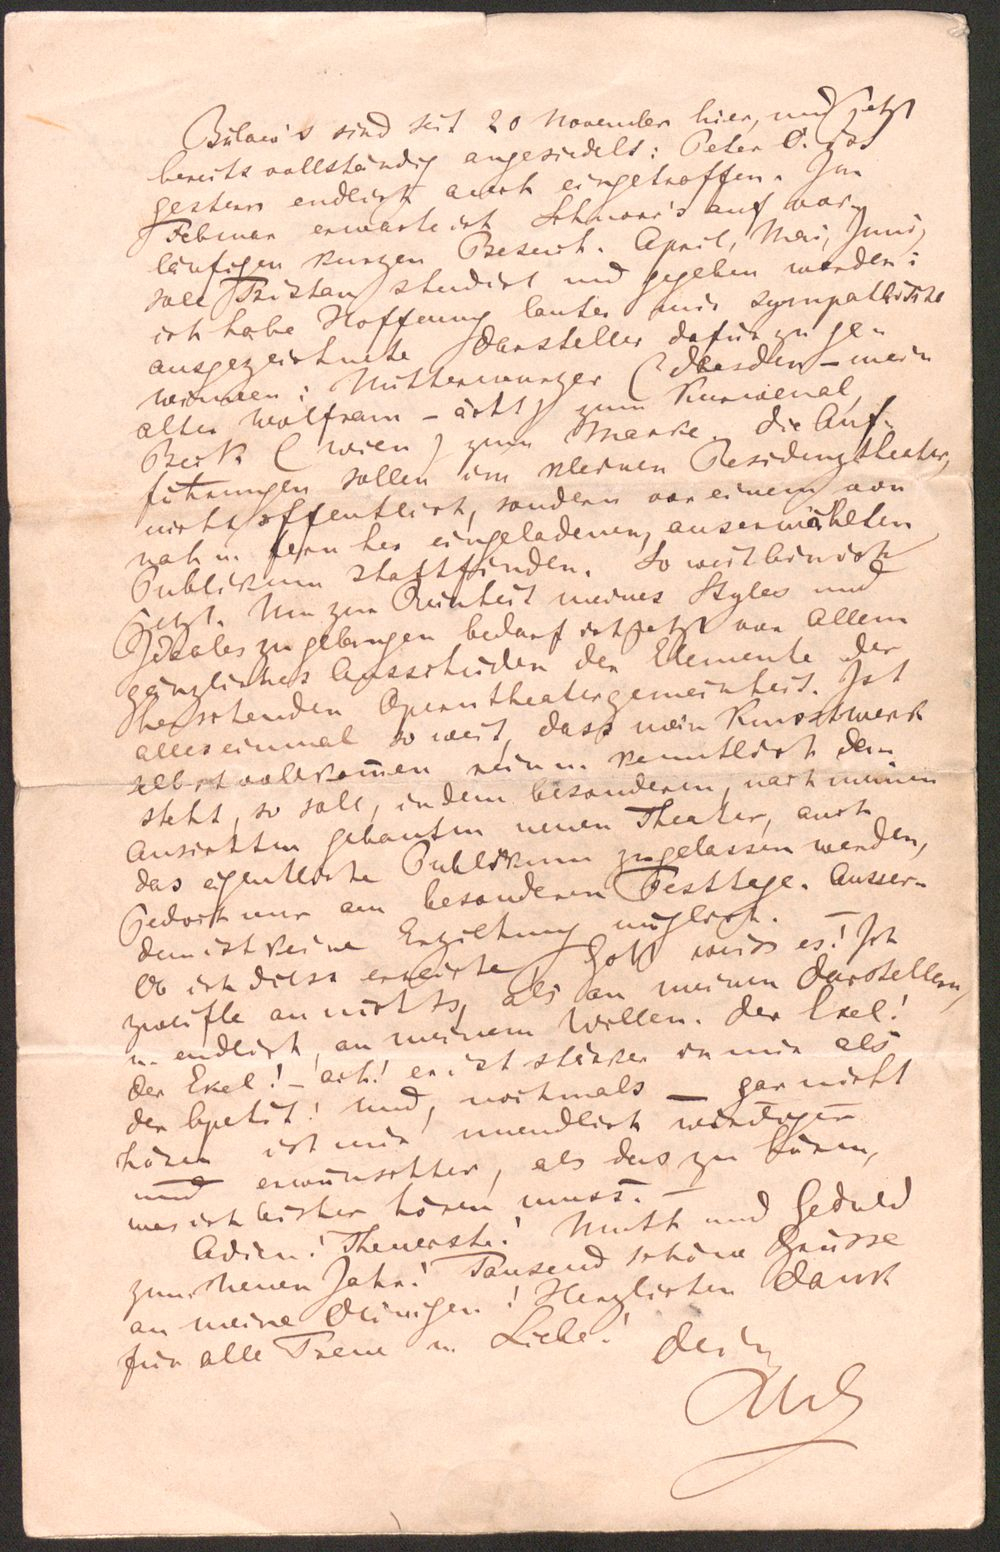 Bülow's sind seit 20 November hier, und jetzt
bereits vollständig angesiedelt: Peter C. ist
gestern endlich auch eingetroffen. Im
Februar erwarte ich Schnorr's auf vor-
läufigen kurzen Besuch. April, Mai, Juni,
soll Tristan studirt und gegeben werden:
ich habe Hoffnung lauter mir sympathische
ausgezeichnete Darsteller dafür zu ge-
winnen: Mitterwurzer (Dresden – mein
alter Wolfram – ächt) zum Kurwenal,
Beck (Wien) zum Marke. Die Auf-
führungen sollen im kleinen Residenztheater,
nicht öffentlich, sondern vor einem von
nah u. fern her eingeladenen, auserwählten
Publikum stattfinden. So weit bin ich
jetzt. Um zur Reinheit meines Styles und
Ideales zu gelangen bedarf ich jetzt vor Allem
gänzliches Ausscheiden der Elemente der
herschenden Operntheatergemeinheit. Ist
alles einmal so weit, dass mein Kunstwerk
selbst vollkom̄en rein u. kenntlich da-
steht, so soll, in dem besonderen, nach meinen
Ansichten gebauten neuen Theater, auch
das eigentliche Publikum zugelassen werden,
jedoch nur an besonderen Festtage. Ausser-
dem ist keine Erziehung möglich. –
Ob ich diess erreiche, Gott weiss es! Ich
zweifle an nichts, als an meinen Darstellern,
u. endlich, an meinem Willen. Der Ekel!
der Ekel! – ach! er ist stärker in mir als
der Apetit! Und, nochmals – gar nicht
hören ist mir unendlich würdiger
und erwünschter, als das zu hören,
was ich bisher hören muss. –
Adieu! Theuerste! Muth und Geduld
zum neuen Jahr! Tausend schöne Grüsse
an meine Deinigen! Herzlichen Dank
für alle Treue u. Liebe!
Dein